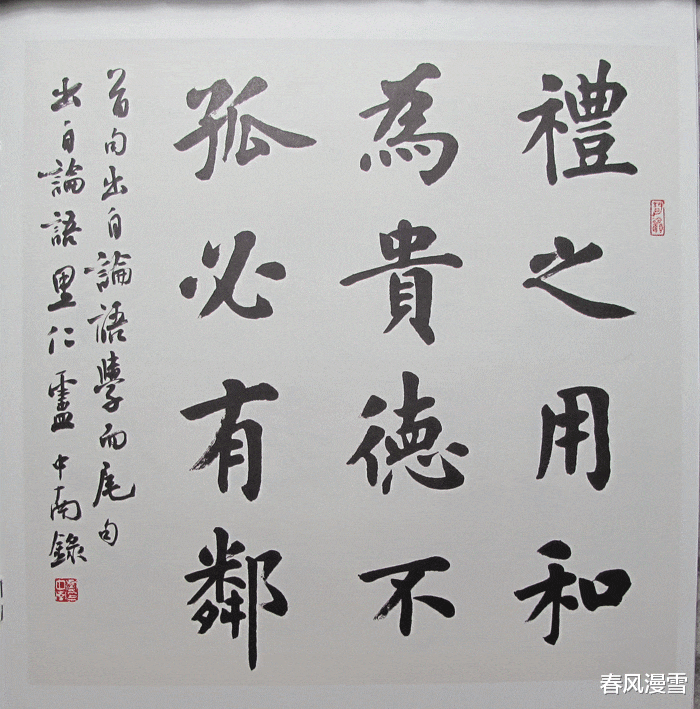 禮之用和
為貴德不
孤必有鄰
首句出自論語學而尾句
出自論語里仁盧中南錄
春风漫雪